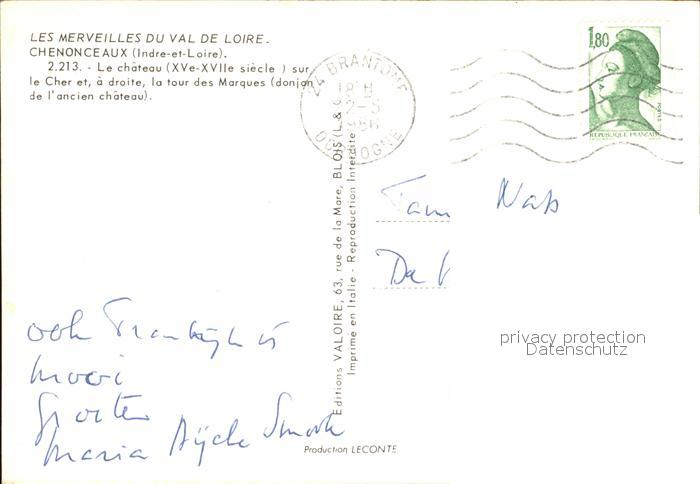 LES MERVEILLES DU VAL DE LOIRE.
CHENONCEAUX (Indre-et-Loire).
2.213. - Le château (XVe-XVIIe siècle) sur
le Cher et, à droite, la tour des Marques (donjon
de l'ancien château).
24 BRANTOME
18 H
2-5
1986
DORDOGNE
1,80
POSTES
REPUBLIQUE FRANCAISE
Editions VALOIRE, 63, rue de la Mare, BLOIS (L. &
Imprimé en Italie - Reproduction Interdite
Fam
De
privacy protection
Datenschutz
ook Frankrijk is
mooi
Groeten
Maria
Production LECONTE